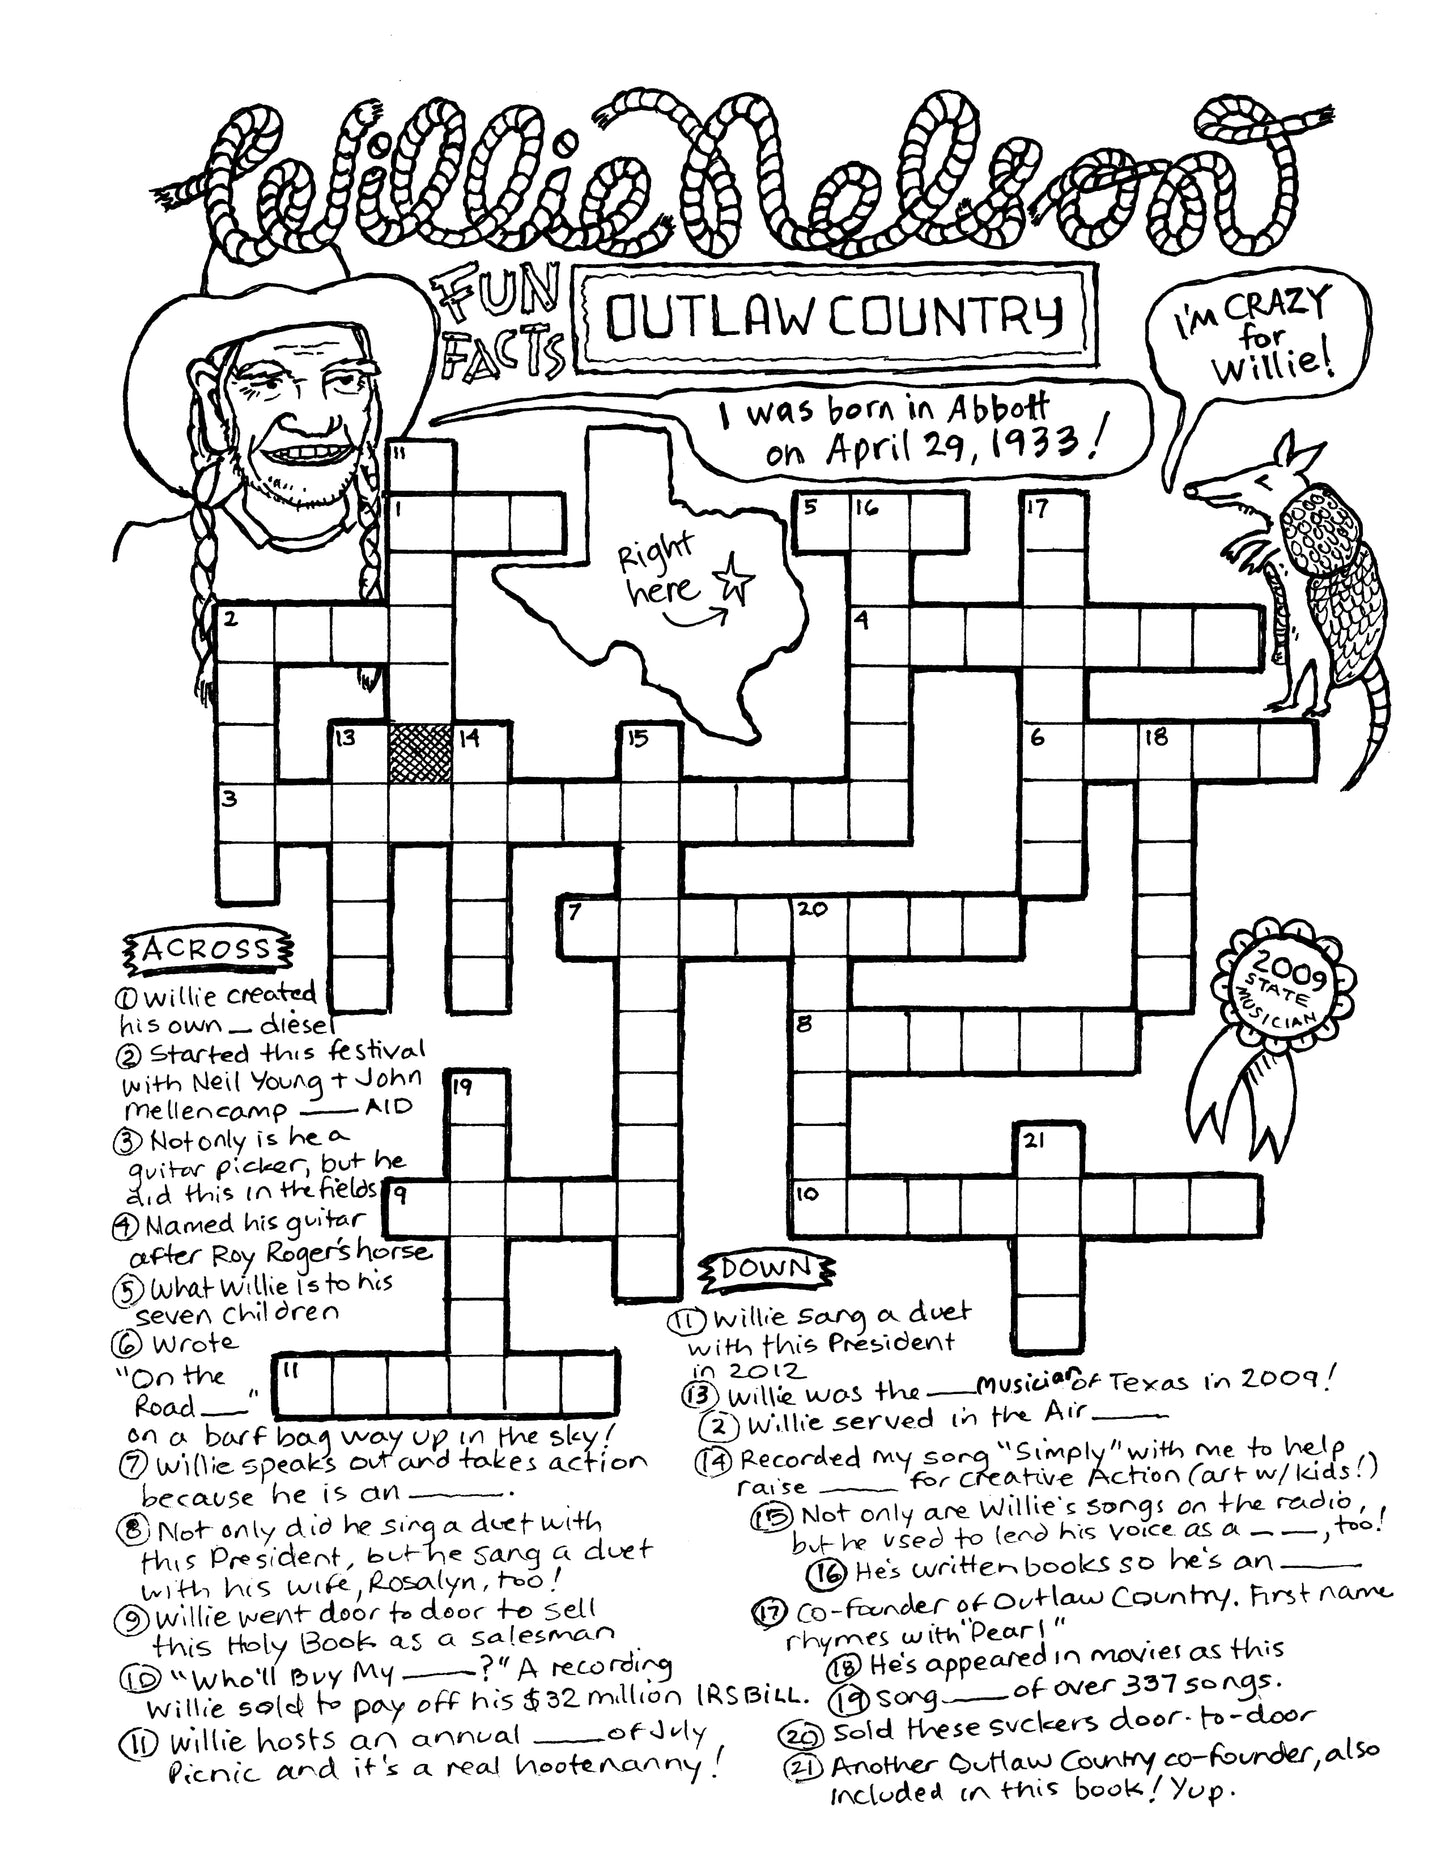 Willie Nelson
FUN
FACTS
OUTLAW COUNTRY
I'm CRAZY
for
Willie!
I was born in Abbott
on April 29, 1933!
Right
here
11
1
5 16 17
2
4
13 14 15
6 18
3
7 20
8
19
21
9
10
11
2009
STATE
MUSICIAN
ACROSS
① Willie created
his own _ diesel
② Started this festival
with Neil Young + John
Mellencamp ___ AID
③ Not only is he a
guitar picker, but he
did this in the fields
④ Named his guitar
after Roy Roger's horse
⑤ What Willie is to his
seven children
⑥ Wrote
"On the
Road ___"
on a barf bag way up in the sky!
⑦ Willie speaks out and takes action
because he is an ____.
⑧ Not only did he sing a duet with
this President, but he sang a duet
with his wife, Rosalyn, too!
⑨ Willie went door to door to sell
this Holy Book as a salesman
⑩ "Who'll Buy My ____?" A recording
Willie sold to pay off his $32 million IRS BILL.
⑪ Willie hosts an annual ____ of July
Picnic and it's a real hootenanny!
DOWN
⑪ Willie sang a duet
with this President
in 2012
⑬ Willie was the ___ Musician of Texas in 2009!
② Willie served in the Air ____
⑭ Recorded my song "Simply" with me to help
raise ____ for Creative Action (art w/ kids!)
⑮ Not only are Willie's songs on the radio,
but he used to lend his voice as a _ __, too!
⑯ He's written books so he's an ____
⑰ Co-founder of Outlaw Country. First name
rhymes with "Pearl"
⑱ He's appeared in movies as this
⑲ Song ____ of over 337 songs.
⑳ Sold these suckers door-to-door
㉑ Another Outlaw Country co-founder, also
included in this book! Yup.